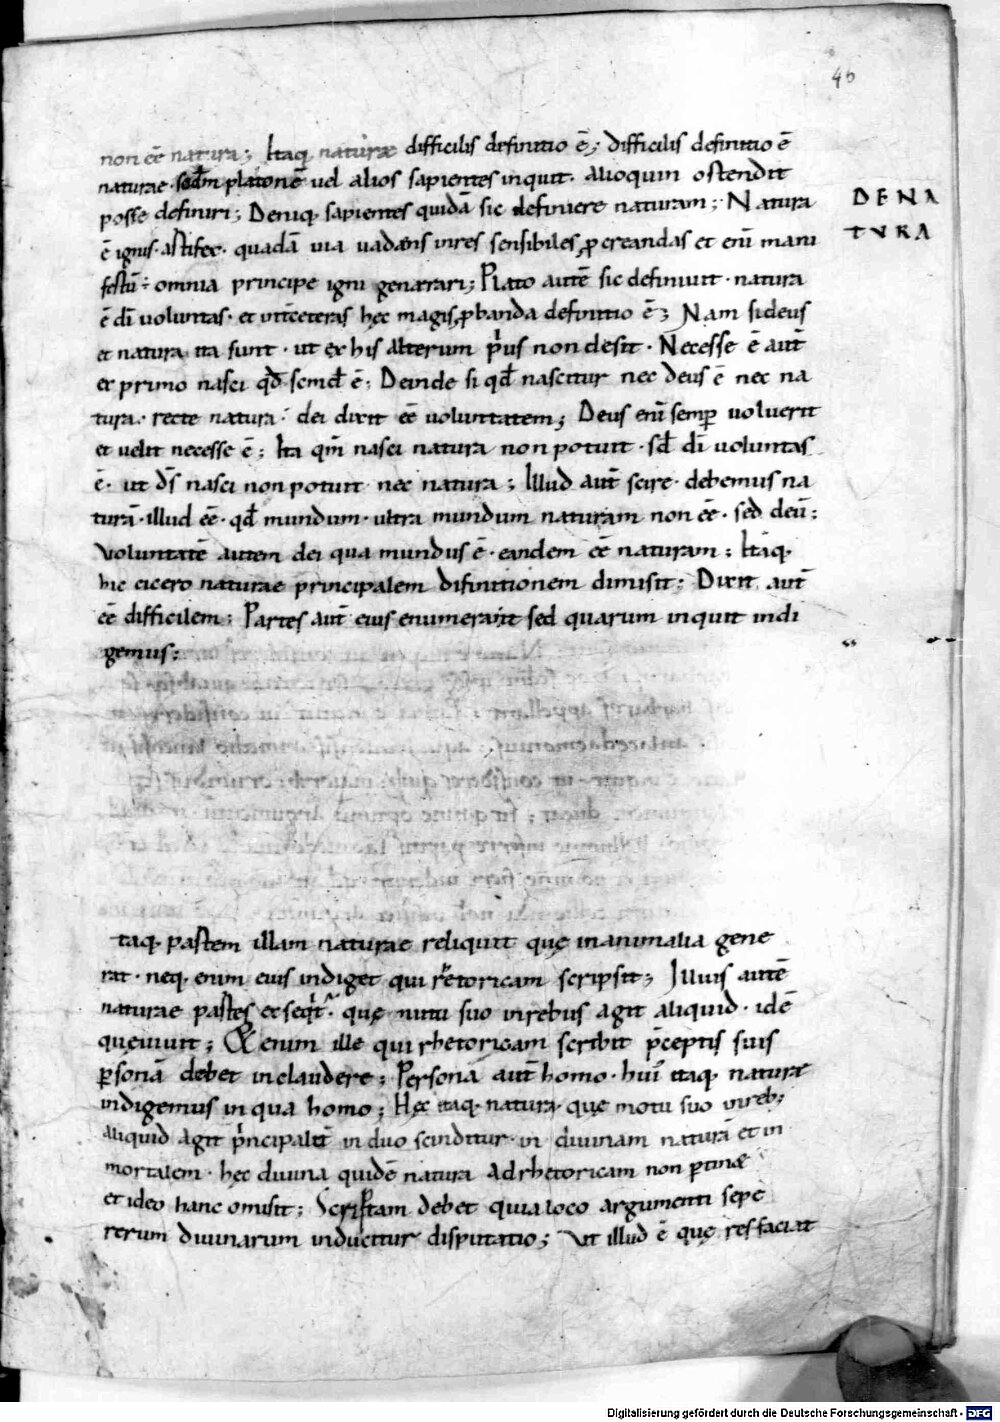 46
non eē natura; Itaq; naturæ difficilis definitio ē; difficilis definitio ē
naturae. sedm platonē uel alios sapientes inquit. alioquin ostendit
posse definiri; Deniq; sapientes quidā sic definiere naturam; Natura
DENA
TURA
ē ignis artifex. quadā uia uadens in res sensibiles, pcreandas et eni mani
festū: omnia principe igni generari; Plato autē sic definiuit. natura
ē dī uoluntas. et inter ceteras hęc magis pbanda definitio ē; Nam si deus
et natura ita sunt. ut ex his alterum prius non desit. Necesse ē aut
ex primo nasci qd semel ē; Deinde si qd nascitur nec deus ē nec na
tura. recte natura dei dixit eē uoluntatem; Deus eni semp uoluerit
et uelit necesse ē; Ita qm nasci natura non potuit. sed dī uoluntas
ē. ut ds nasci non potuit nec natura; Illud aut scire debemus na
turā. illud eē. qd mundum. ultra mundum naturam non eē. sed deū;
Voluntatē autem dei qua mundus ē. eandem eē naturam; Itaq;
hic cicero naturae principalem difinitionem dimisit; Dixit aut
eē difficilem; Partes aut eius enumerauit sed quarum inquit indi
gemus;
taq; partem illam naturae reliquit quę inanimalia gene
rat. neq; enim eius indiget qui rhetoricam scripsit; Illius autē
naturae partes exseqt. quę nutu suo in rebus agit aliquid. idē
quę uiuit; & enim ille qui rhetoricam scribit pceptis suis
psonā debet includere; Personā aut homo. hui itaq; naturæ
indigemus in qua homo; Hęc itaq; natura. quę motu suo in reb;
aliquid agit principalit in duo scinditur. in diuinam naturā et in
mortalem. hęc diuina quidē natura ad rhetoricam non ptinæ
et ideo hanc omisit; Scriptam debet quia loco argumenti sepe
rerum diuinarum inducitur disputatio; Ut illud ē quę res faciat
Digitalisierung gefördert durch die Deutsche Forschungsgemeinschaft - DFG